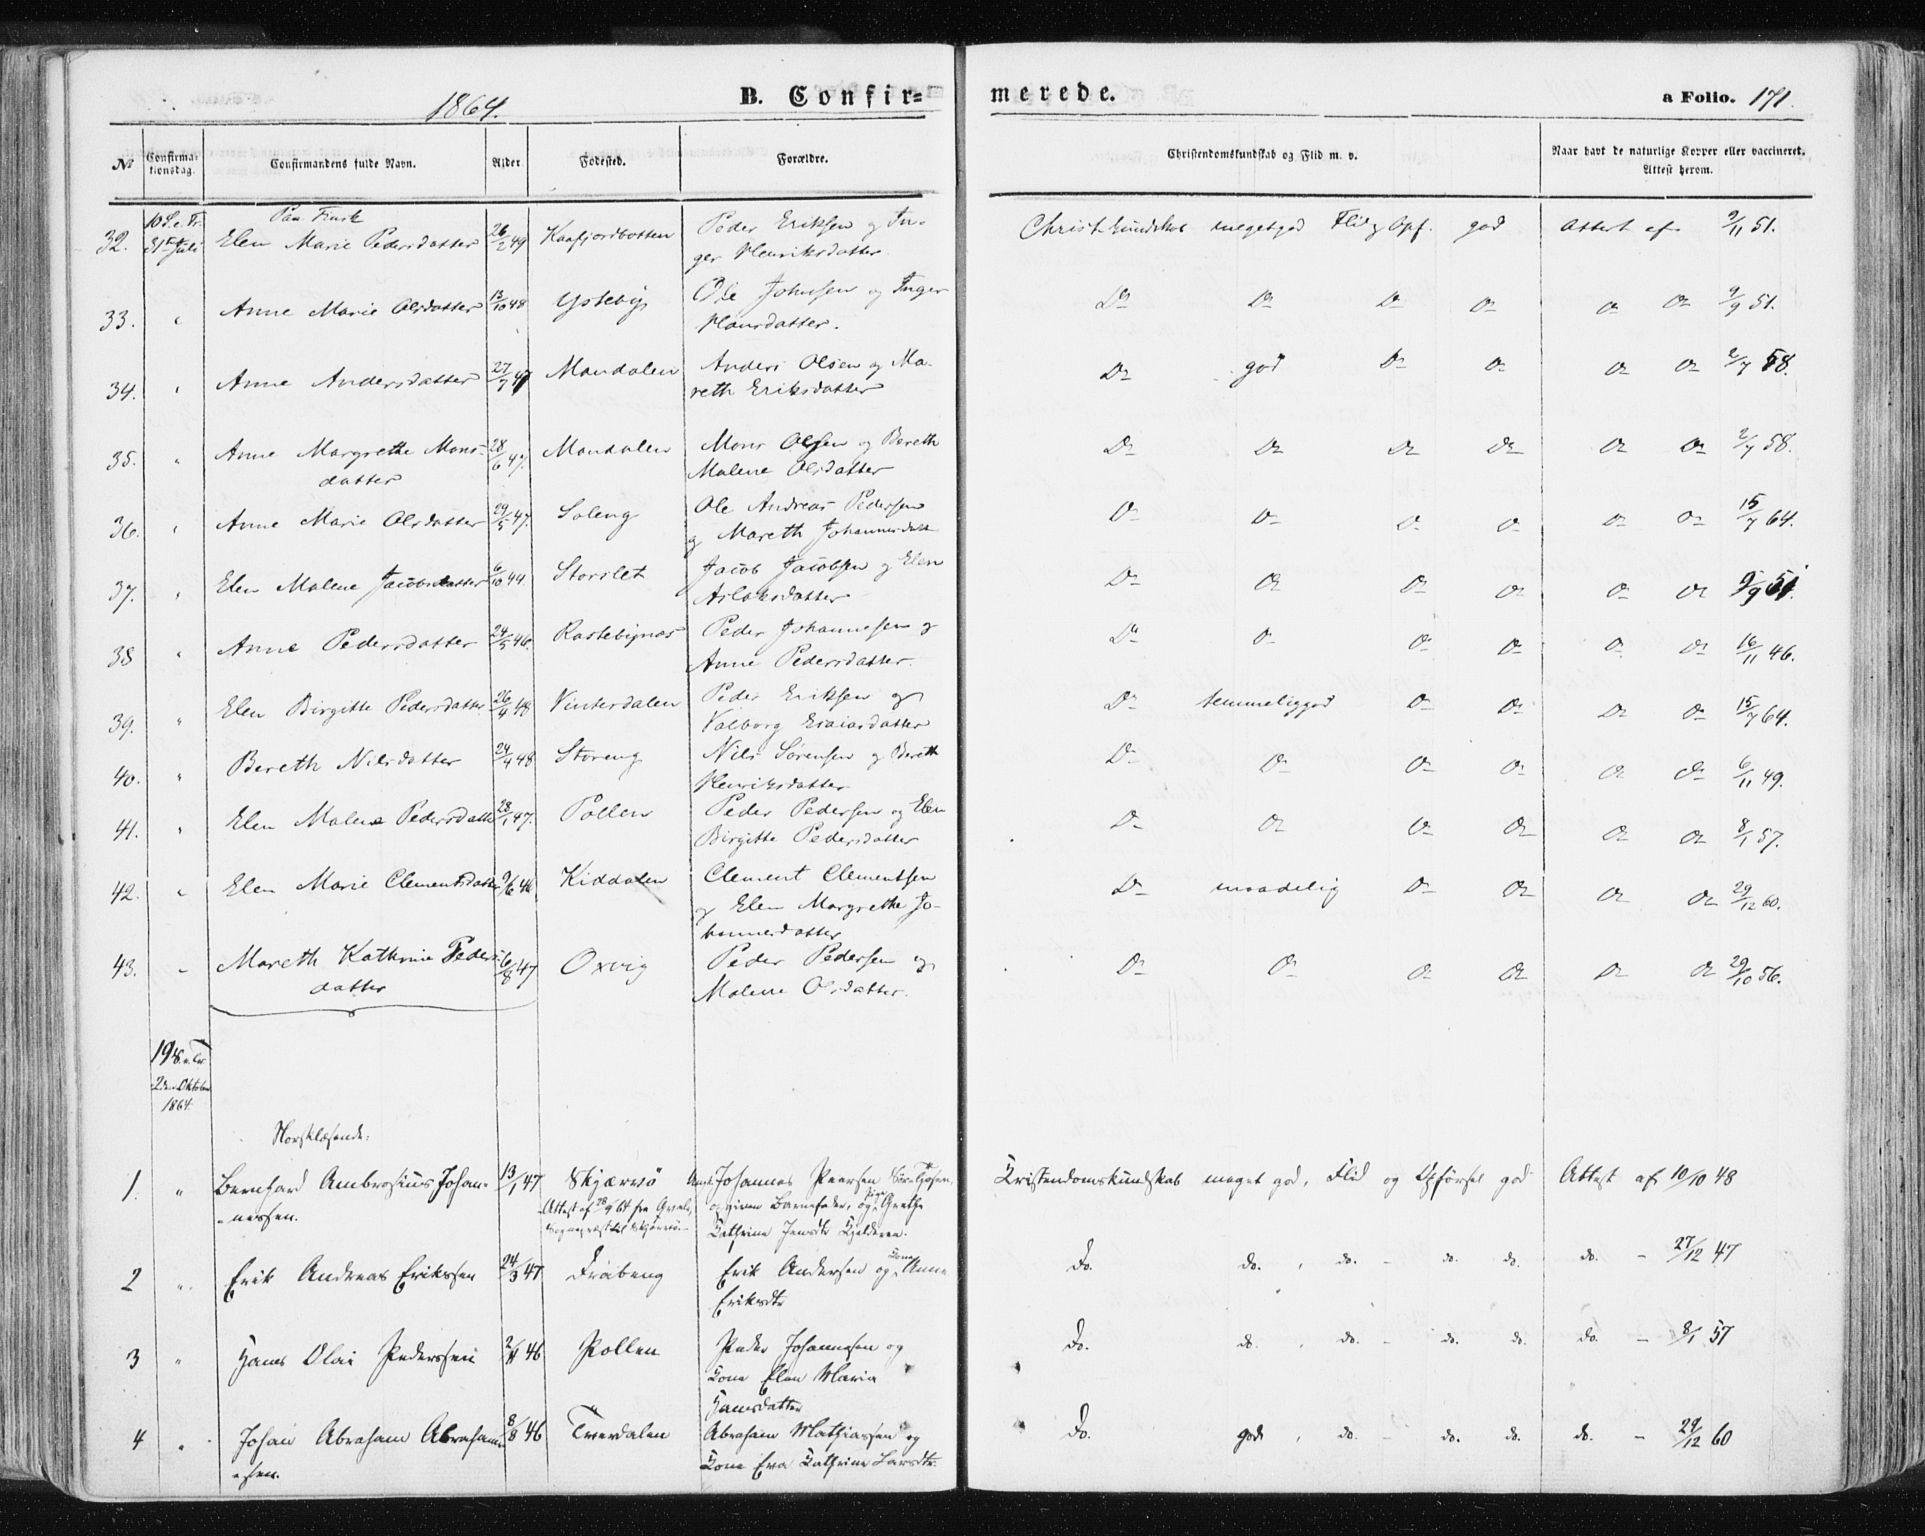 1864.
B. Confir=
merede.
a Folio. 171.
No
Confirmationsdag.
Confirmandens fulde Navn.
Alder
Fødested.
Forældre.
Christendomskundskab og Flid m. v.
Naar havt de naturlige Kopper eller vaccineret. Attest herom.
32. 10 S. e. Tr. 31te Juli
Paa Finsk
Elen Marie Pedersdatter 26/2 49 Kaafjordbotten Peder Eriksen og Inger Henriksdatter. Christ kundskab megetgod Flid og Opf. god Attest af 9/11 51.
33. " Anne Marie Olsdatter 13/10 48 Ysteby Ole Johnsen og Inger Hansdatter. Do Do Do Do Do Do 9/9 51.
34. " Anne Andersdatter 27/7 47 Mandalen Anders Olsen og Mareth Eriksdatter Do god Do Do Do Do 2/7 58.
35. " Anne Margrethe Monsdatter 28/6 47. Mandalen Mons Olsen og Bereth Malene Olsdatter Do Do Do Do Do Do 2/7 58.
36. " Anne Marie Olsdatter 29/5 47. Soleng Ole Andreas Pedersen og Mareth Johannesdatt Do Do Do Do Do Do 15/7 64.
37. " Elen Malene Jacobsdatter 6/10 44 Storslet Jacob Jacobsen og Elen Aslaksdatter Do Do Do Do Do Do 9/9 51.
38 " Anne Pedersdatter 24/5 46. Rastebynæs Peder Johannesen og Anne Pedersdatter. Do Do Do Do Do Do 16/11 46.
39. " Elen Birgitte Pedersdatter 26/4 48 Vinterdalen Peder Eriksen og Valborg Esaiasdatter Do temmeliggod Do Do Do Do 15/7 64.
40. " Bereth Nilsdatter 24/4 48 Storeng Nils Sørensen og Bereth Henriksdatter Do Do Do Do Do Do 6/11 49.
41. " Elen Malene Pedersdatter 28/1 47. Pollen Peder Pedersen og Elen Birgitte Pedersdatter Do Do Do Do Do Do 8/1 57.
42. " Elen Marie Clementsdatter 9/6 46 Kiddalen Clement Clementsen og Elen Margrethe Johannesdatter Do maadelig Do Do Do Do 29/12 60.
43. " Mareth Kathrine Pedersdatter 6/8 47 Oxvig Peder Pedersen og Malene Olsdatter. Do Do Do Do Do Do 29/10 56.
19 S. e. Tr.
2den Oktober
1864.
Norsklæsende:
1. " Bernhard Ambrosius Johannessen. 13/1 47 Skjærvö Johannes Peersen og Grethe Cathrine Jensdtr Kristendomskundskab meget god, Flid og Opförsel god Attest af 10/10 48
2 " Erik Andreas Erikssen 24/3 47 Fraibeng Erik Andersen og Kone Anne Eriksdtr Do. do. , do. - do. do. do. - 27/12 47
3 " Hans Olai Pederssen 2/11 46 Pollen Peder Johannesen og Kone Elen Maria Hansdatter Do. do. , do. - do. do. do. - 8/1 57
4 " Johan Abraham Abrahamsen. 8/8 46 Tverdalen Abraham Mathiassen og Kone Eva Cathrine Larsdtr. Do. god. , do. - do. do. do. - 29/12 60